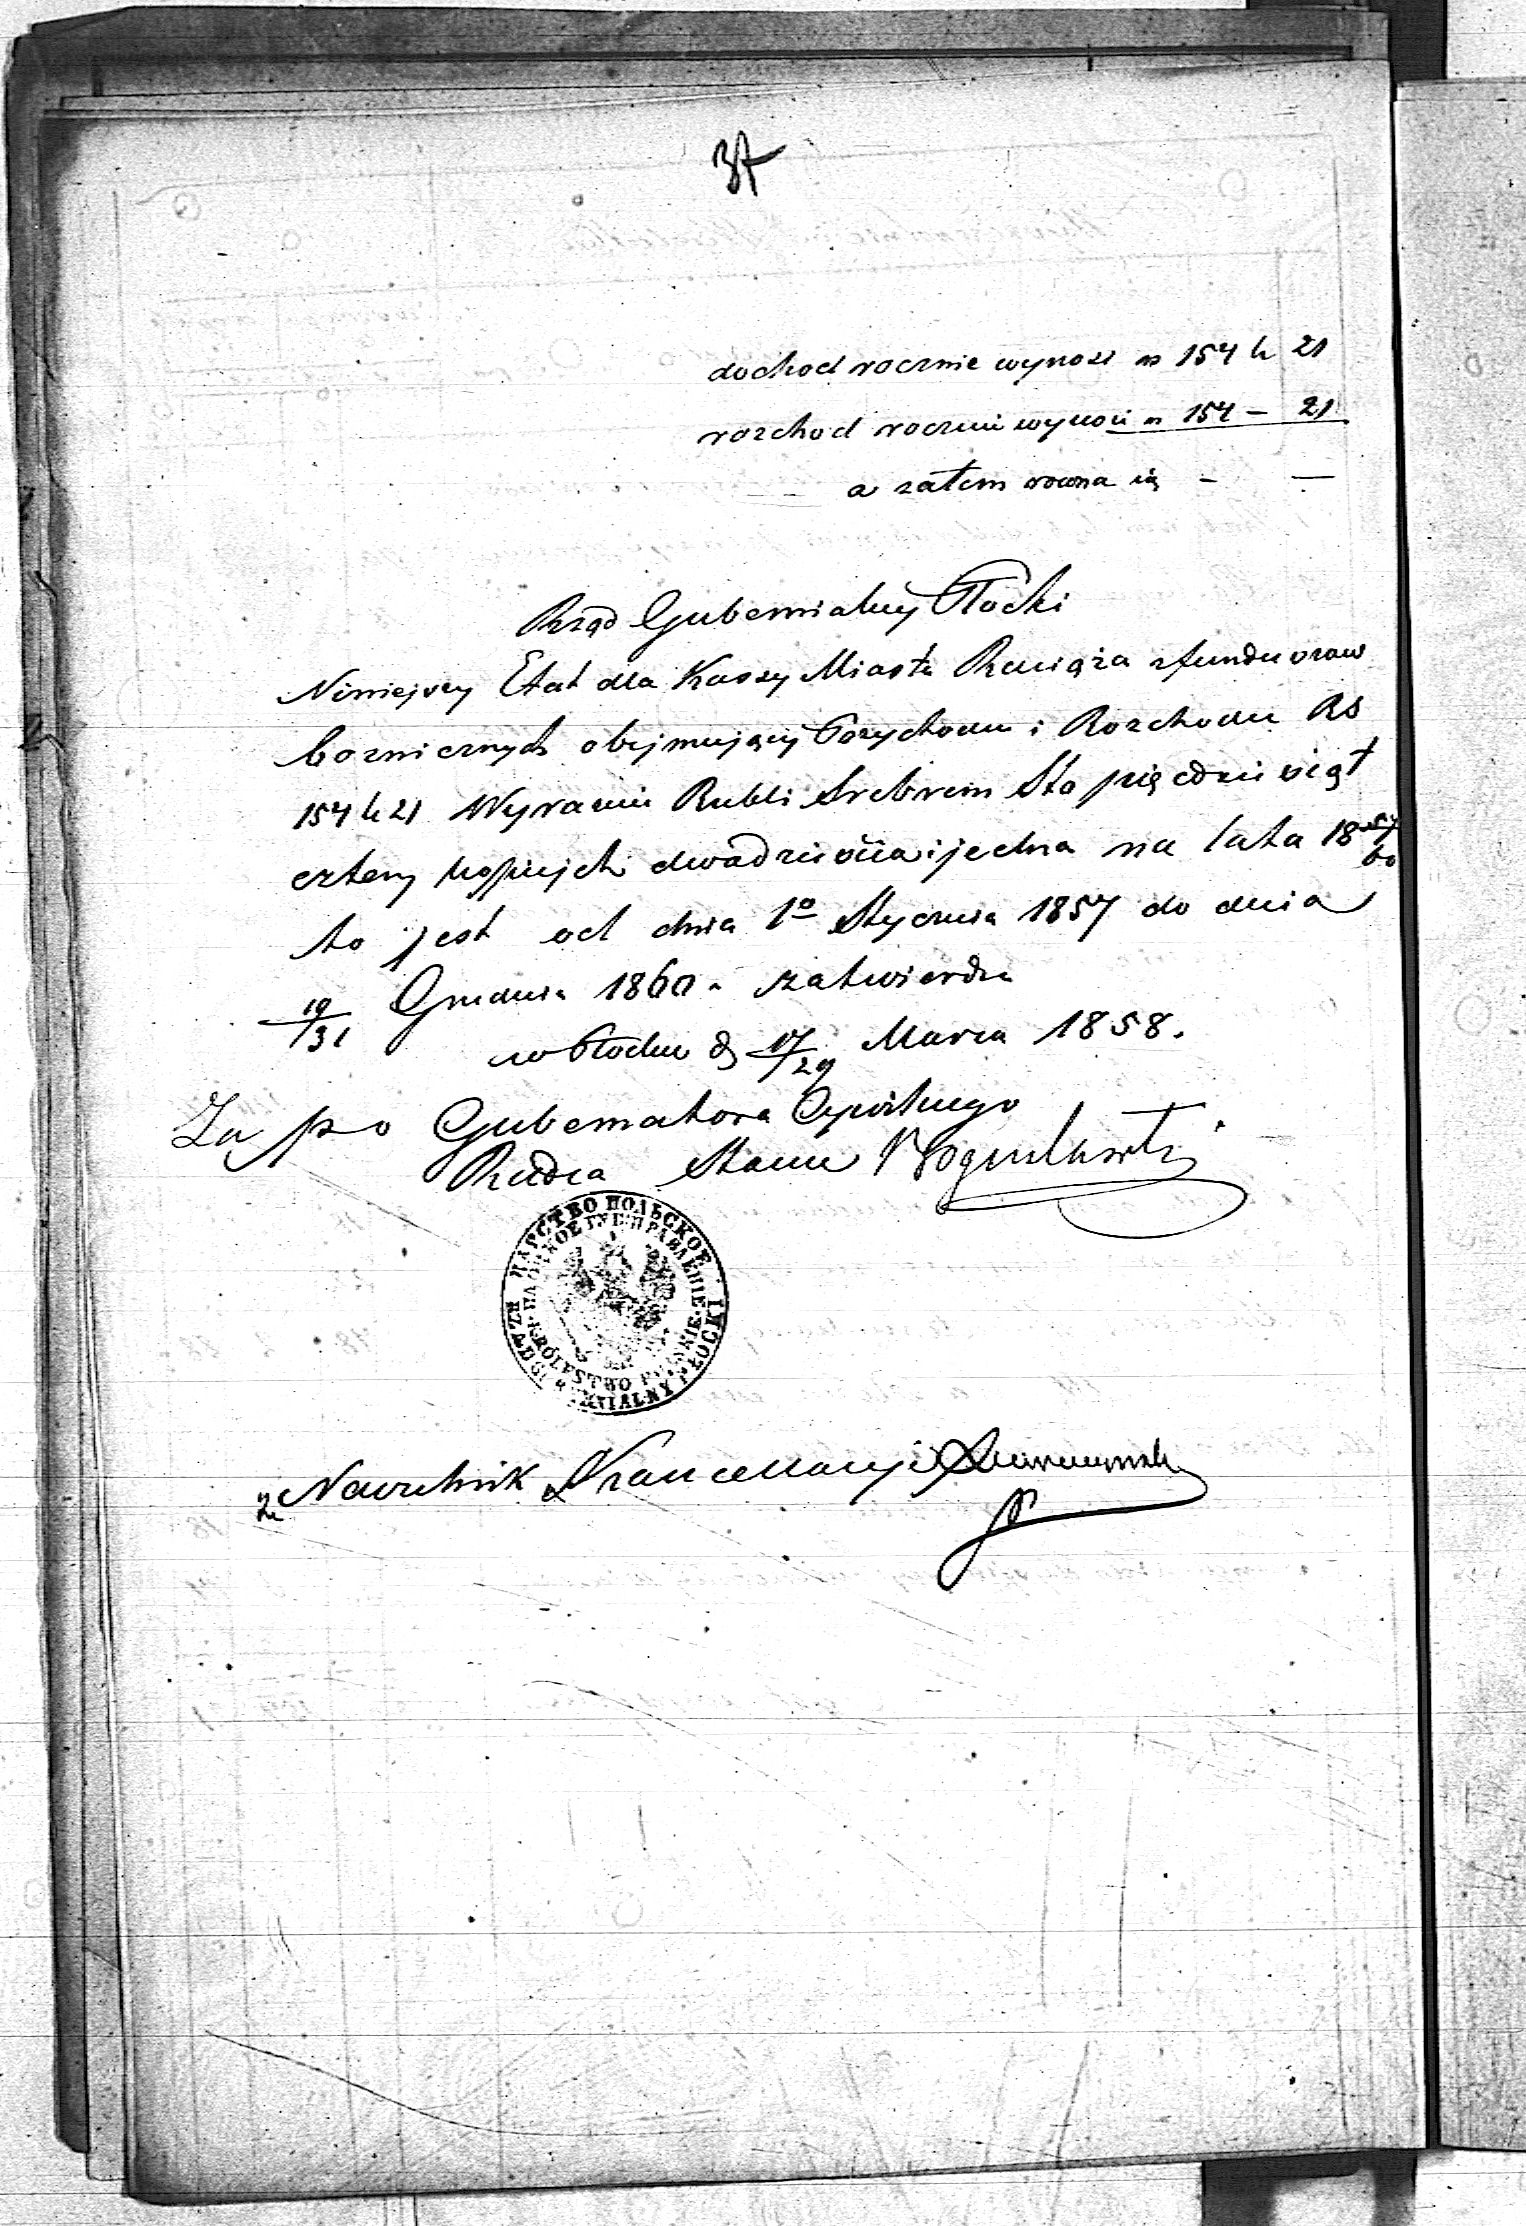 37
dochod rocznie wynosi rs 154 k 21
rozchod rocznie wynosi rs 154 – 21
a zatem rowna się – –
Rząd Gubernialny Płocki
Niniejszy Etat dla Kassy Miasta Raciąża z funduszow
bozniczych obejmujący Przychodu i Rozchodu RS
154 k 21 Wyraznie Rubli Srebrem Sto pięćdziesiąt
cztery kopiejek dwadzieścia i jedna na lata 1857/60
to jest od dnia 1º Stycznia 1857 do dnia
19/31 Grudnia 1860. zatwierdza
w Płocku d 17/29 Marca 1858.
Za p o Gubernatora Cywilnego
Radca Stanu
ЦАРСТВО ПОЛЬСКОЕ
ГУБ. ПРАВЛЕНИЕ
KRÓLESTWO POLSKIE
RZĄD GUBERNIALNY PŁOCKI
za Naczelnik Kancellaryi